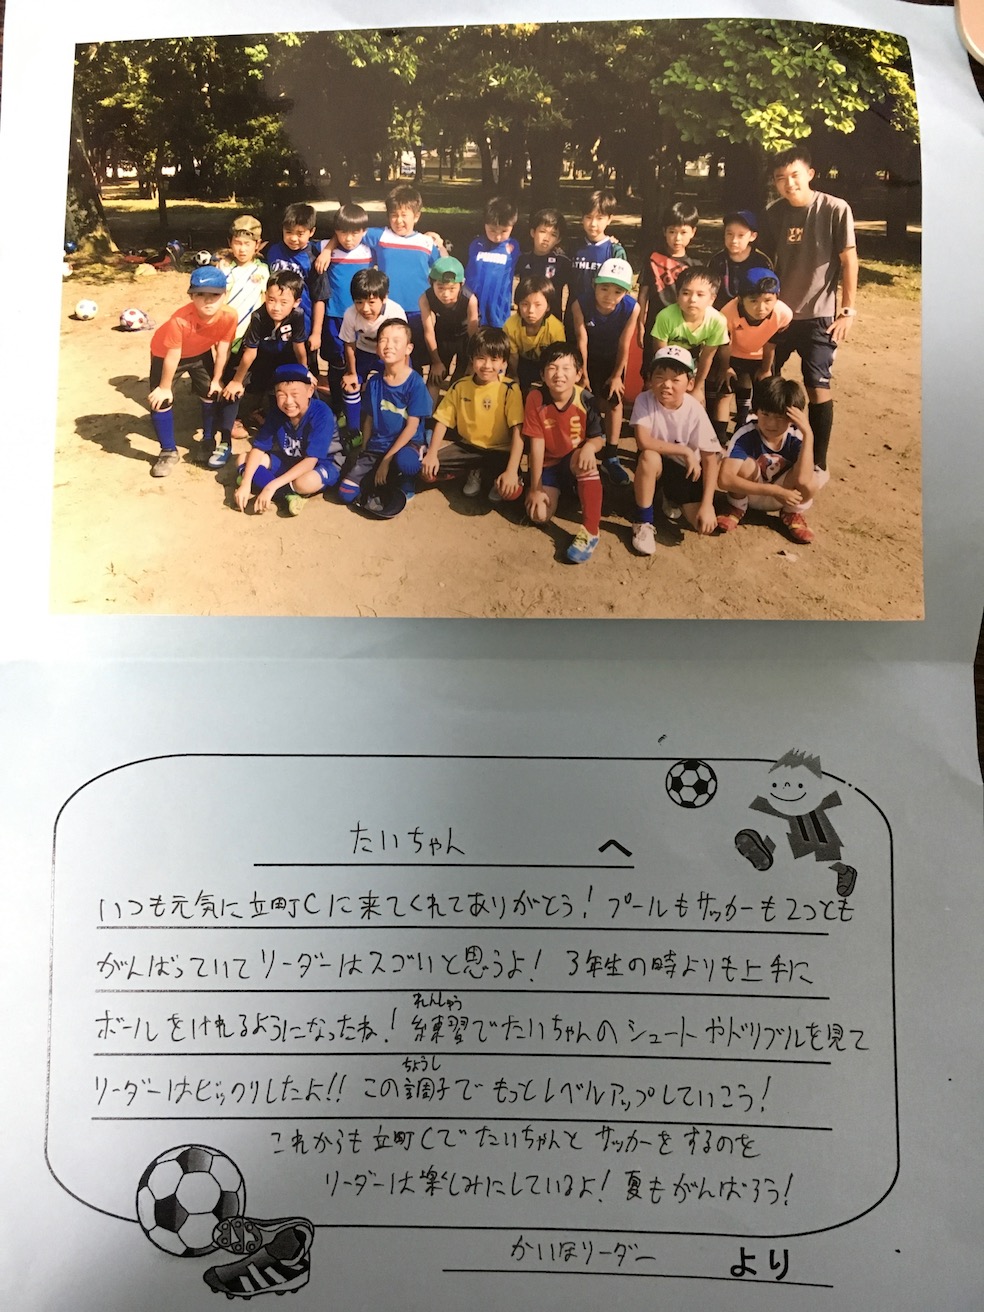 PUMA
ATHLETA
たいちゃん へ
いつも元気に立町Cに来てくれてありがとう! プールもサッカーも2つとも
がんばっていてリーダーはスゴいと思うよ! 3年生の時よりも上手に
ボールをけれるようになったね! 練習でたいちゃんのシュートやドリブルを見て
れんしゅう
リーダーはビックリしたよ!! この調子でもっとレベルアップしていこう!
ちょうし
これからも立町Cでたいちゃんとサッカーをするのを
リーダーは楽しみにしているよ! 夏もがんばろう!
かいほリーダー より